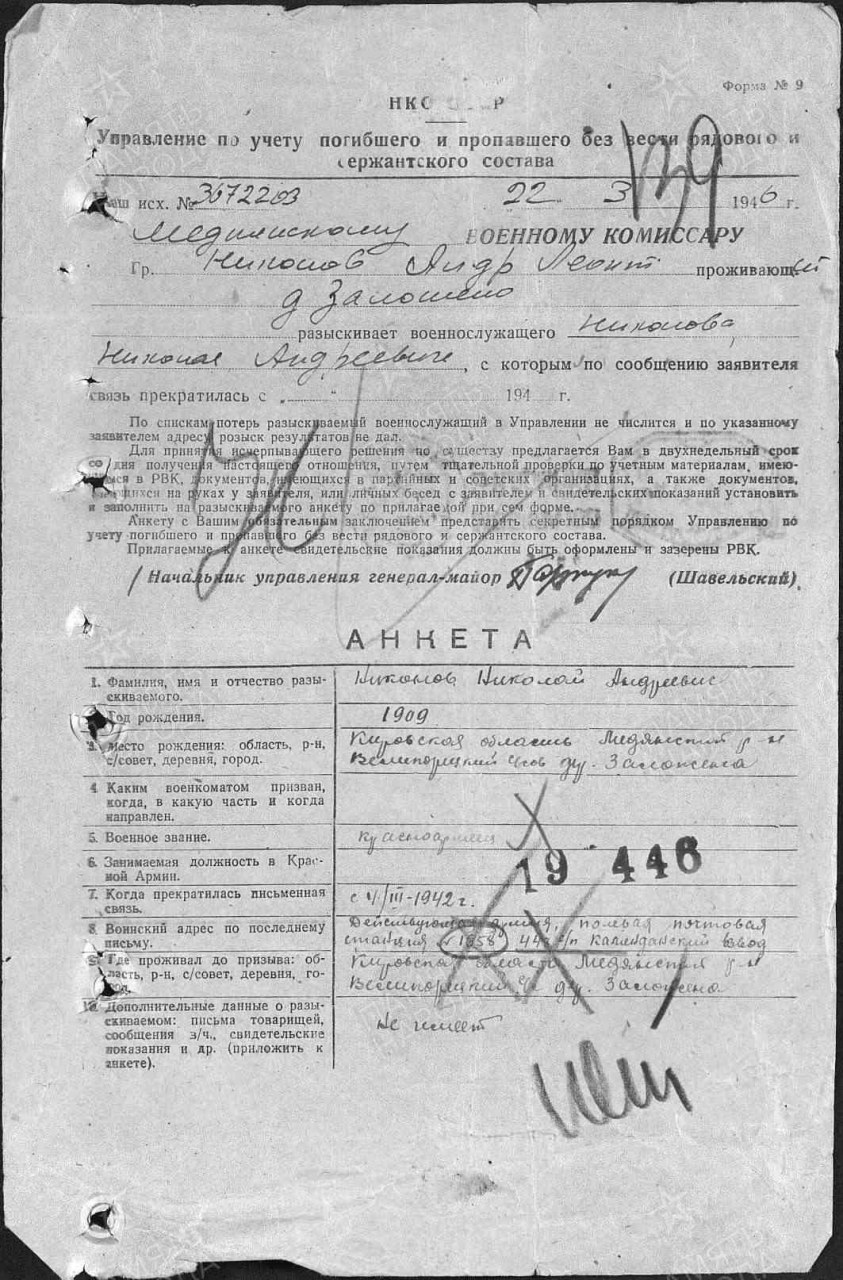 Форма № 9
НКО Р
Управление по учету погибшего и пропавшего без вести рядового и
сержантского состава
Наш исх. № 3672203 22 3 1946 г.
Медянскому ВОЕННОМУ КОМИССАРУ
Гр. Никонов Андр Леонт проживающий
д Заложено
разыскивает военнослужащего Никонова
Николая Андреевича, с которым по сообщению заявителя
связь прекратилась с „ “ 194 г.
По спискам потерь разыскиваемый военнослужащий в Управлении не числится и по указанному
заявителем адресу розыск результатов не дал.
Для принятия исчерпывающего решения по существу предлагается Вам в двухнедельный срок
со дня получения настоящего отношения, путем тщательной проверки по учетным материалам, имею-
щимся в РВК, документов, имеющихся в партийных и советских организациях, а также документов,
имеющихся на руках у заявителя, или личных бесед с заявителем и свидетельских показаний установить
и заполнить на разыскиваемого анкету по прилагаемой при сем форме.
Анкету с Вашим обязательным заключением представить секретным порядком Управлению по
учету погибшего и пропавшего без вести рядового и сержантского состава.
Прилагаемые к анкете свидетельские показания должны быть оформлены и заверены РВК.
Начальник управления генерал-майор (Шавельский)
АНКЕТА
1. Фамилия, имя и отчество разы-
скиваемого.
Никонов Николай Андреевич
2. Год рождения.
1909
3. Место рождения: область, р-н,
с/совет, деревня, город.
Кировская область Медянский р-н
Великорецкий дер. Заложена
4. Каким военкоматом призван,
когда, в какую часть и когда
направлен.
5. Военное звание.
красноармеец
6. Занимаемая должность в Крас-
ной Армии.
19 446
7. Когда прекратилась письменная
связь.
с III-1942 г.
8. Воинский адрес по последнему
письму.
Действующая армия, полевая почтовая
станция 1658 взвод
9. Где проживал до призыва: об-
ласть, р-н, с/совет, деревня, го-
род.
Кировская область Медянский р-н
Великорецкий дер. Заложена
10. Дополнительные данные о разы-
скиваемом: письма товарищей,
сообщения в/ч., свидетельские
показания и др. (приложить к
анкете).
Не имеет